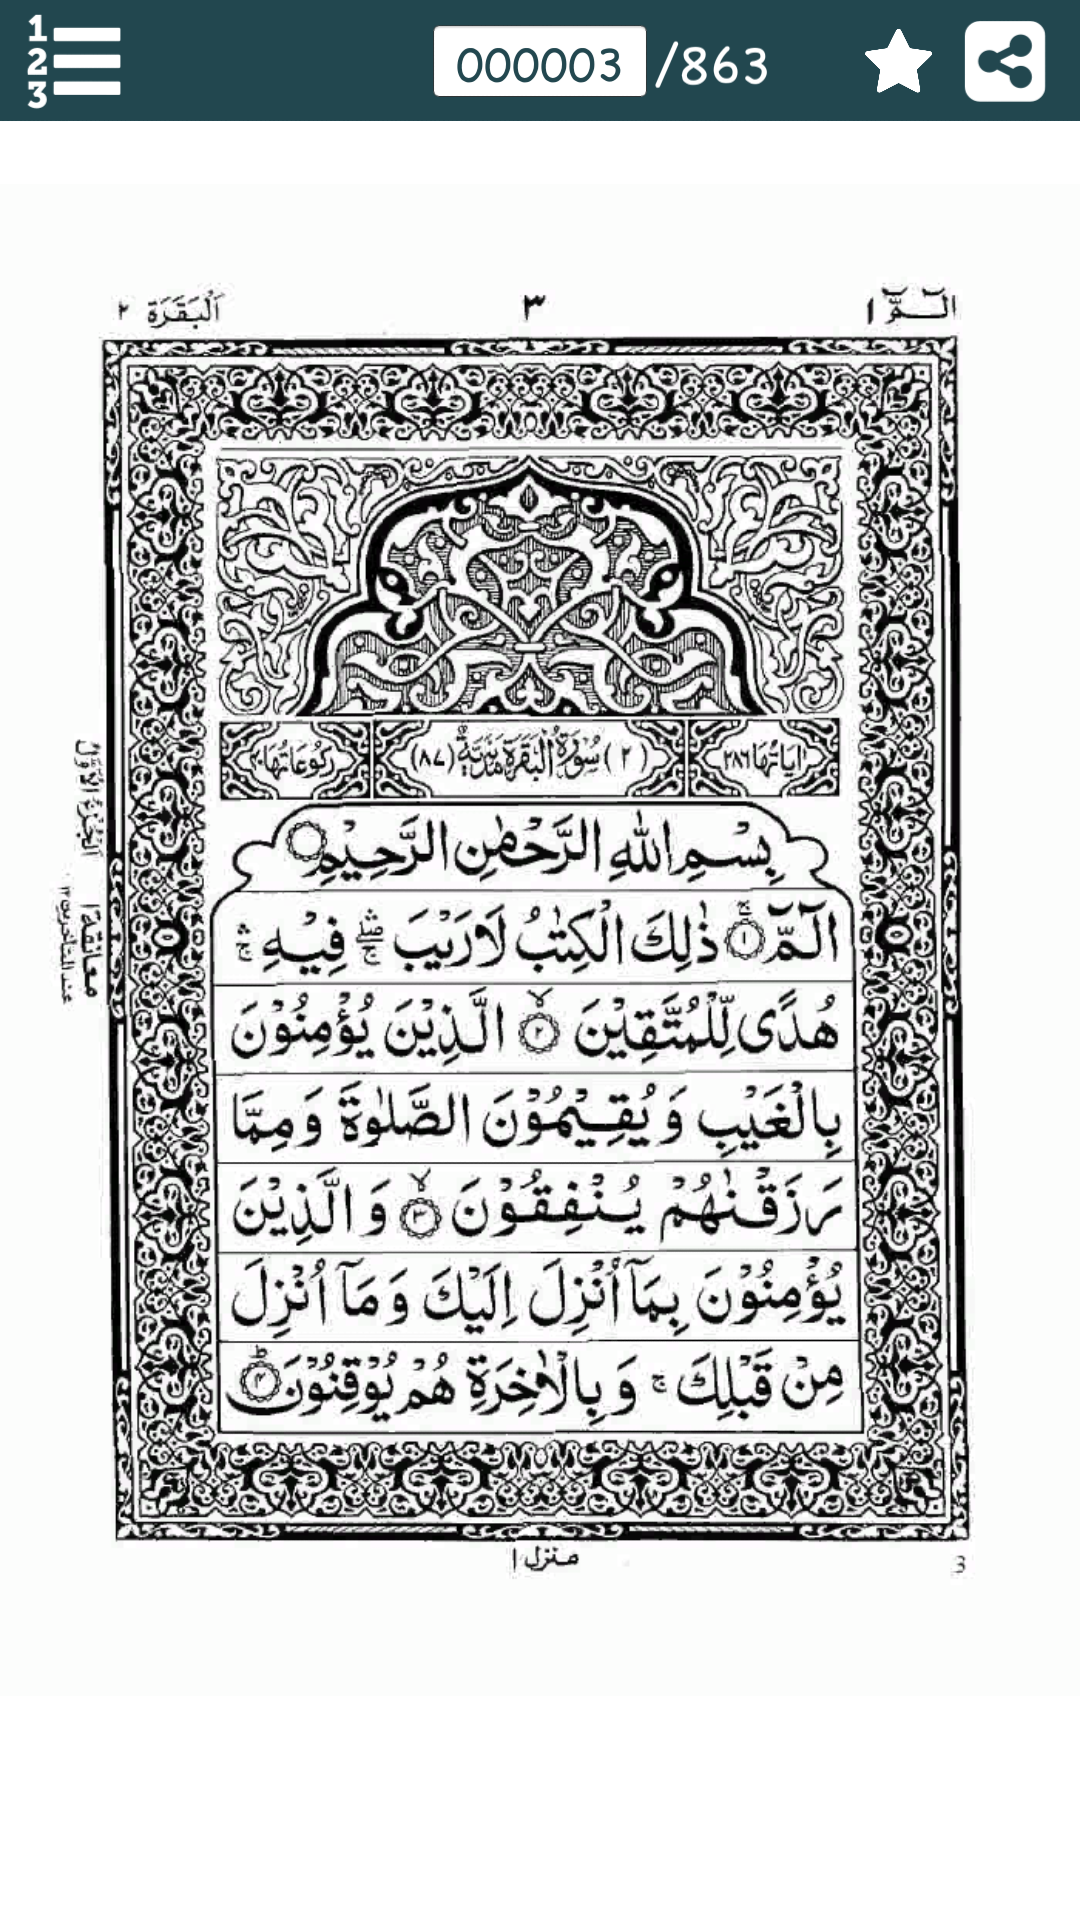 1
2
3
000003 /863
الٓـمّٓ ١
٣
اَلْبَقَرَة ٢
اٰيَاتُهَا ٢٨٦
(٢) سُوْرَةُ الْبَقَرَةِ مَدَنِيَّةٌ (٨٧)
رُكُوْعَاتُهَا ٤٠
بِسْمِ اللّٰهِ الرَّحْمٰنِ الرَّحِيْمِ
الٓمّٓ ۚ ١ ذٰلِكَ الْكِتٰبُ لَا رَيْبَ ۛۖۚ فِيْهِ ۛۚ
هُدًى لِّلْمُتَّقِيْنَ ۙ ٢ الَّذِيْنَ يُؤْمِنُوْنَ
بِالْغَيْبِ وَ يُقِيْمُوْنَ الصَّلٰوةَ وَ مِمَّا
رَزَقْنٰهُمْ يُنْفِقُوْنَ ۙ ٣ وَ الَّذِيْنَ
يُؤْمِنُوْنَ بِمَاۤ اُنْزِلَ اِلَيْكَ وَ مَاۤ اُنْزِلَ
مِنْ قَبْلِكَ ۚ وَ بِالْاٰخِرَةِ هُمْ يُوْقِنُوْنَ ؕ ٤
اَلْجُزْءُ الْاَوَّلُ
معانقة ١
عند المتاخرين ١٢
منزل ١
3